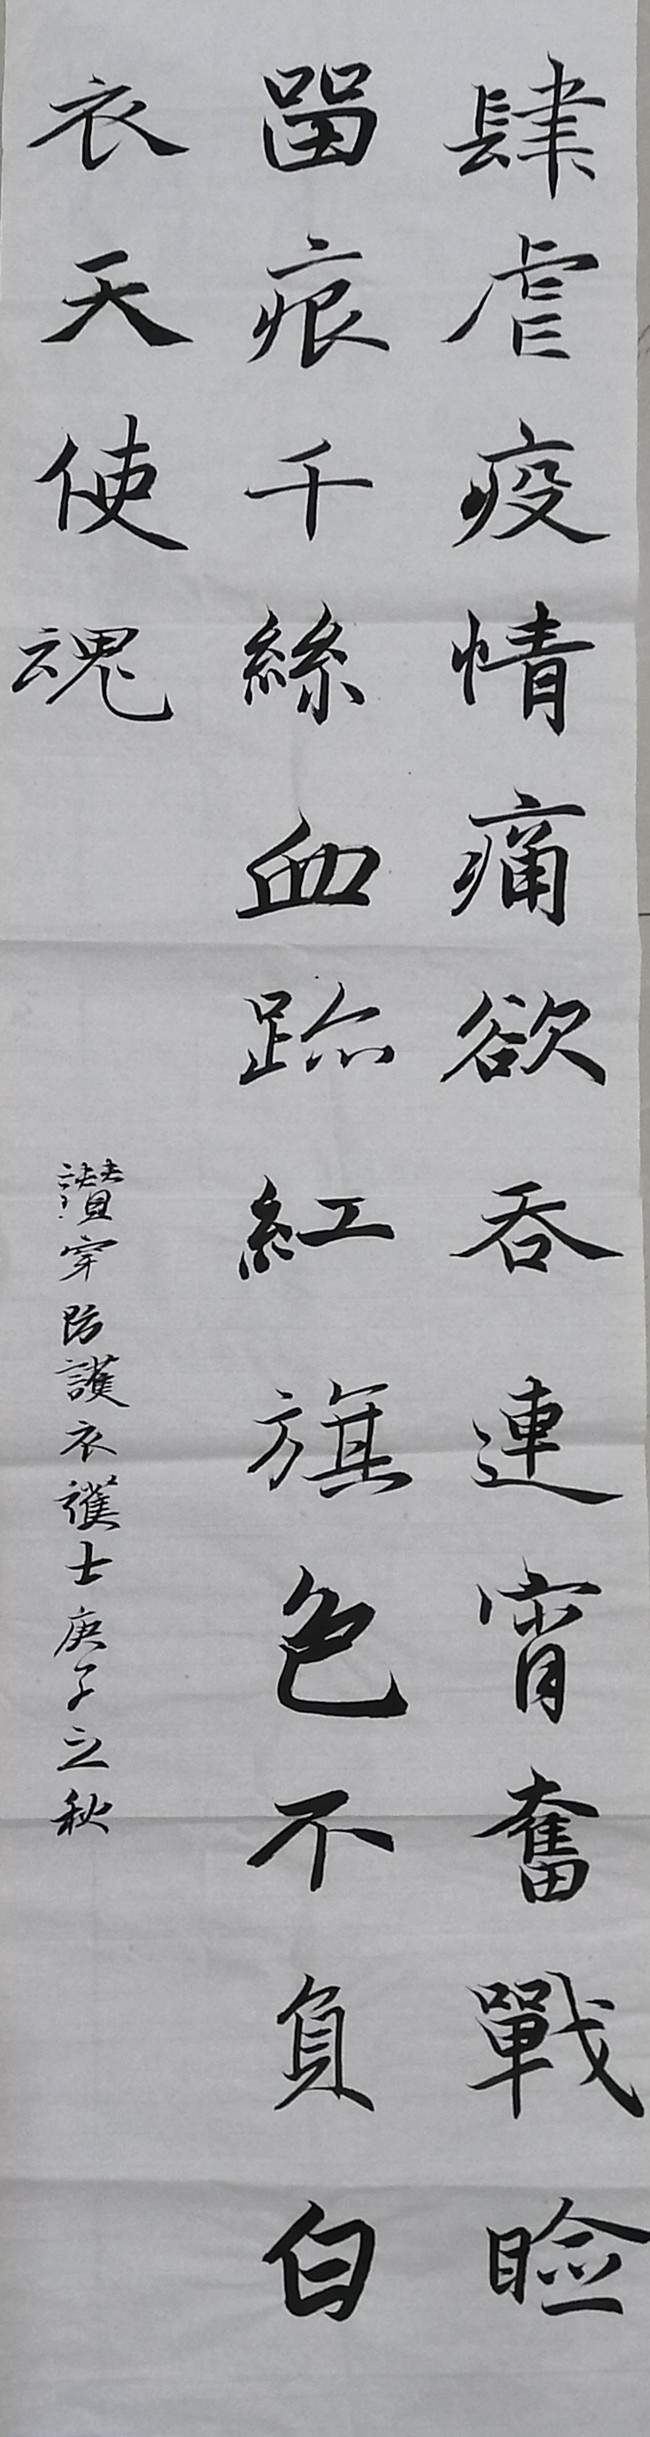 肆虐疫情痛欲吞連宵奮戰睑
留痕千絲血跡紅旗色不負白
衣天使魂
讚穿防護衣護士庚子之秋